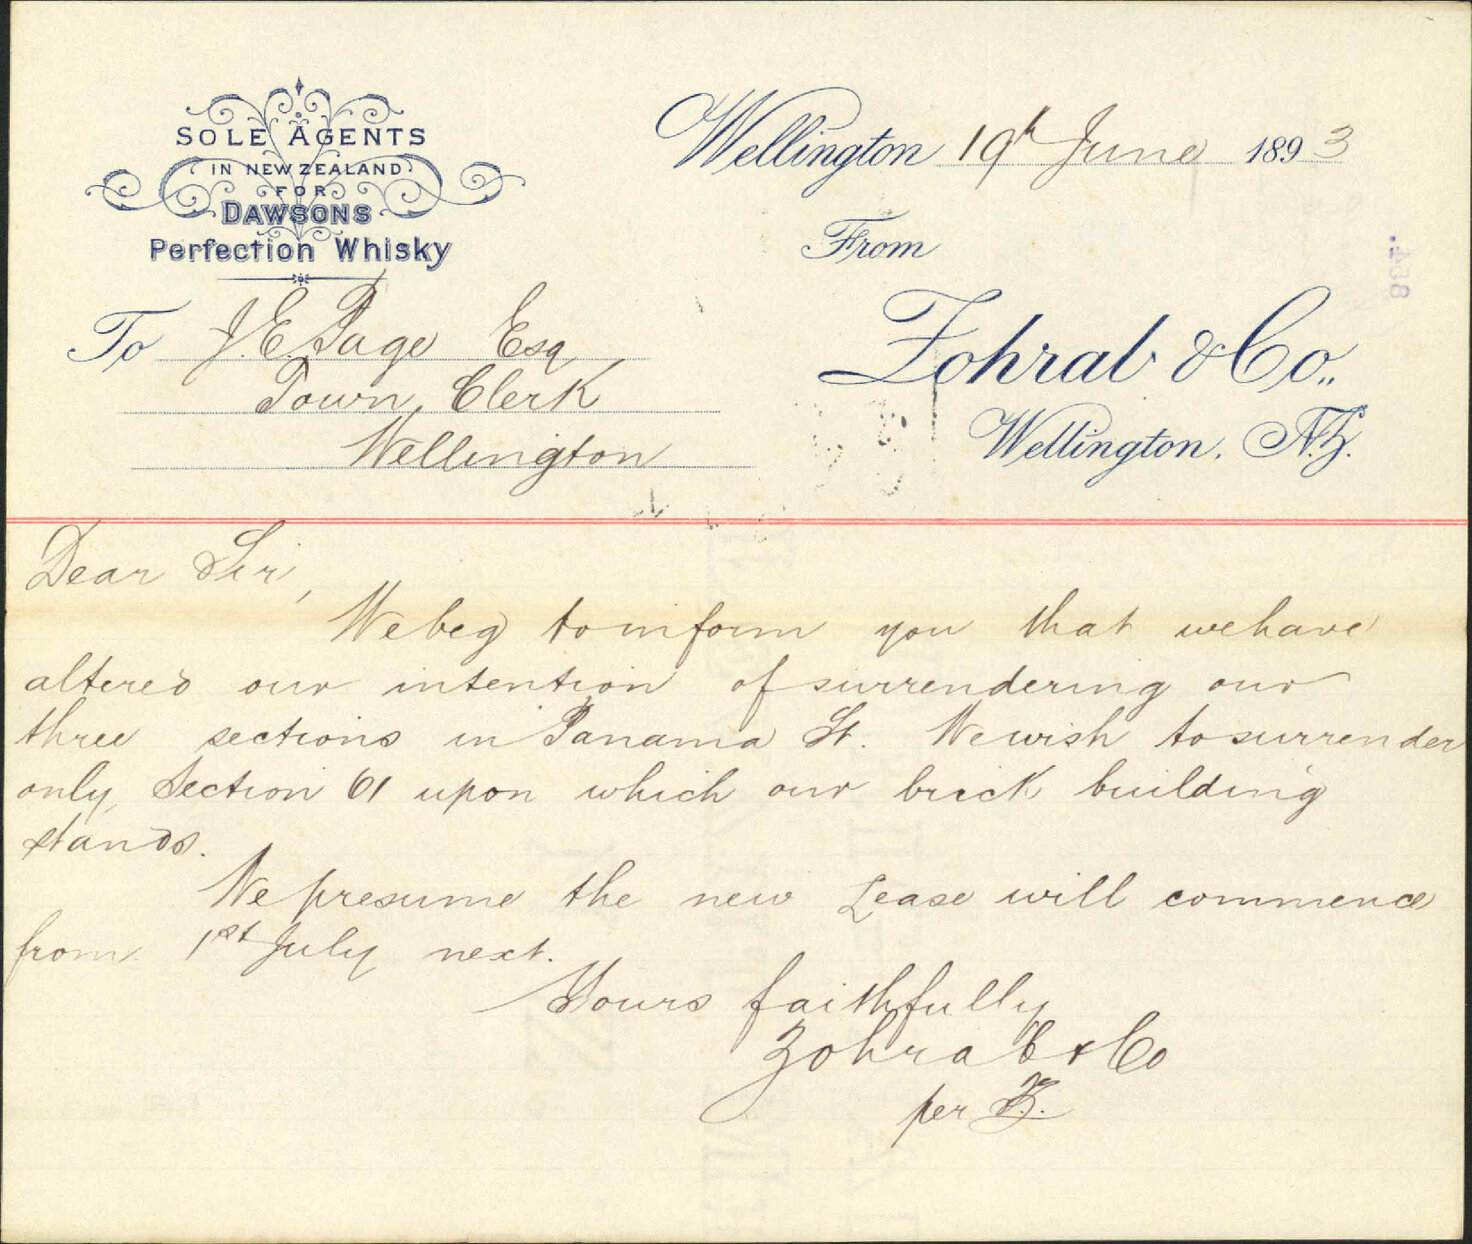 SOLE AGENTS
IN NEW ZEALAND
FOR
DAWSONS
Perfection Whisky
Wellington 19th June 1893
From
Zohrab & Co.,
Wellington, N.Z.
To J. E. Page Esq
Town Clerk
Wellington
Dear Sir,
We beg to inform you that we have
altered our intention of surrendering our
three sections in Panama St. We wish to surrender
only Section 61 upon which our brick building
stands.
We presume the new Lease will commence
from 1st July next.
Yours faithfully
Zohrab & Co
per